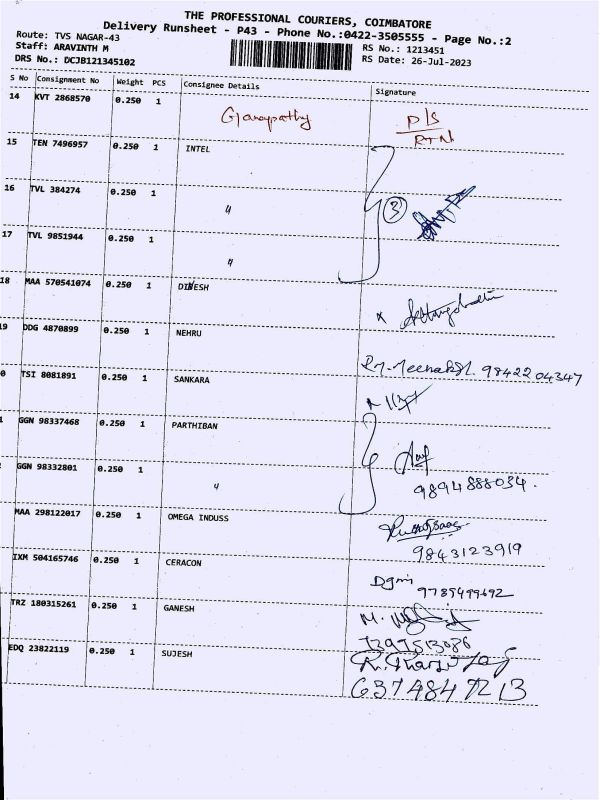 THE PROFESSIONAL COURIERS, COIMBATORE
Delivery Runsheet - P43 - Phone No.:0422-3505555 - Page No.:2
Route: TVS NAGAR-43
Staff: ARAVINTH M
RS No.: 1213451
DRS No.: DCJB121345102
RS Date: 26-Jul-2023
S No Consignment No Weight PCS Consignee Details Signature
14 KVT 2868570 0.250 1 Ganapathy D/S
RTN
15 TEN 7496957 0.250 1 INTEL
16 TVL 384274 0.250 1 〃 3
17 TVL 9851944 0.250 1 〃
18 MAA 570541074 0.250 1 DINESH
9 DDG 4870899 0.250 1 NEHRU
98422 04347
0 TSI 8081891 0.250 1 SANKARA
GGN 98337468 0.250 1 PARTHIBAN
GGN 98332801 0.250 1 〃
9894888034.
MAA 298122017 0.250 1 OMEGA INDUSS
9843123919
IXM 504165746 0.250 1 CERACON
TRZ 180315261 0.250 1 GANESH
M.
EDQ 23822119 0.250 1 SUJESH
6374847213